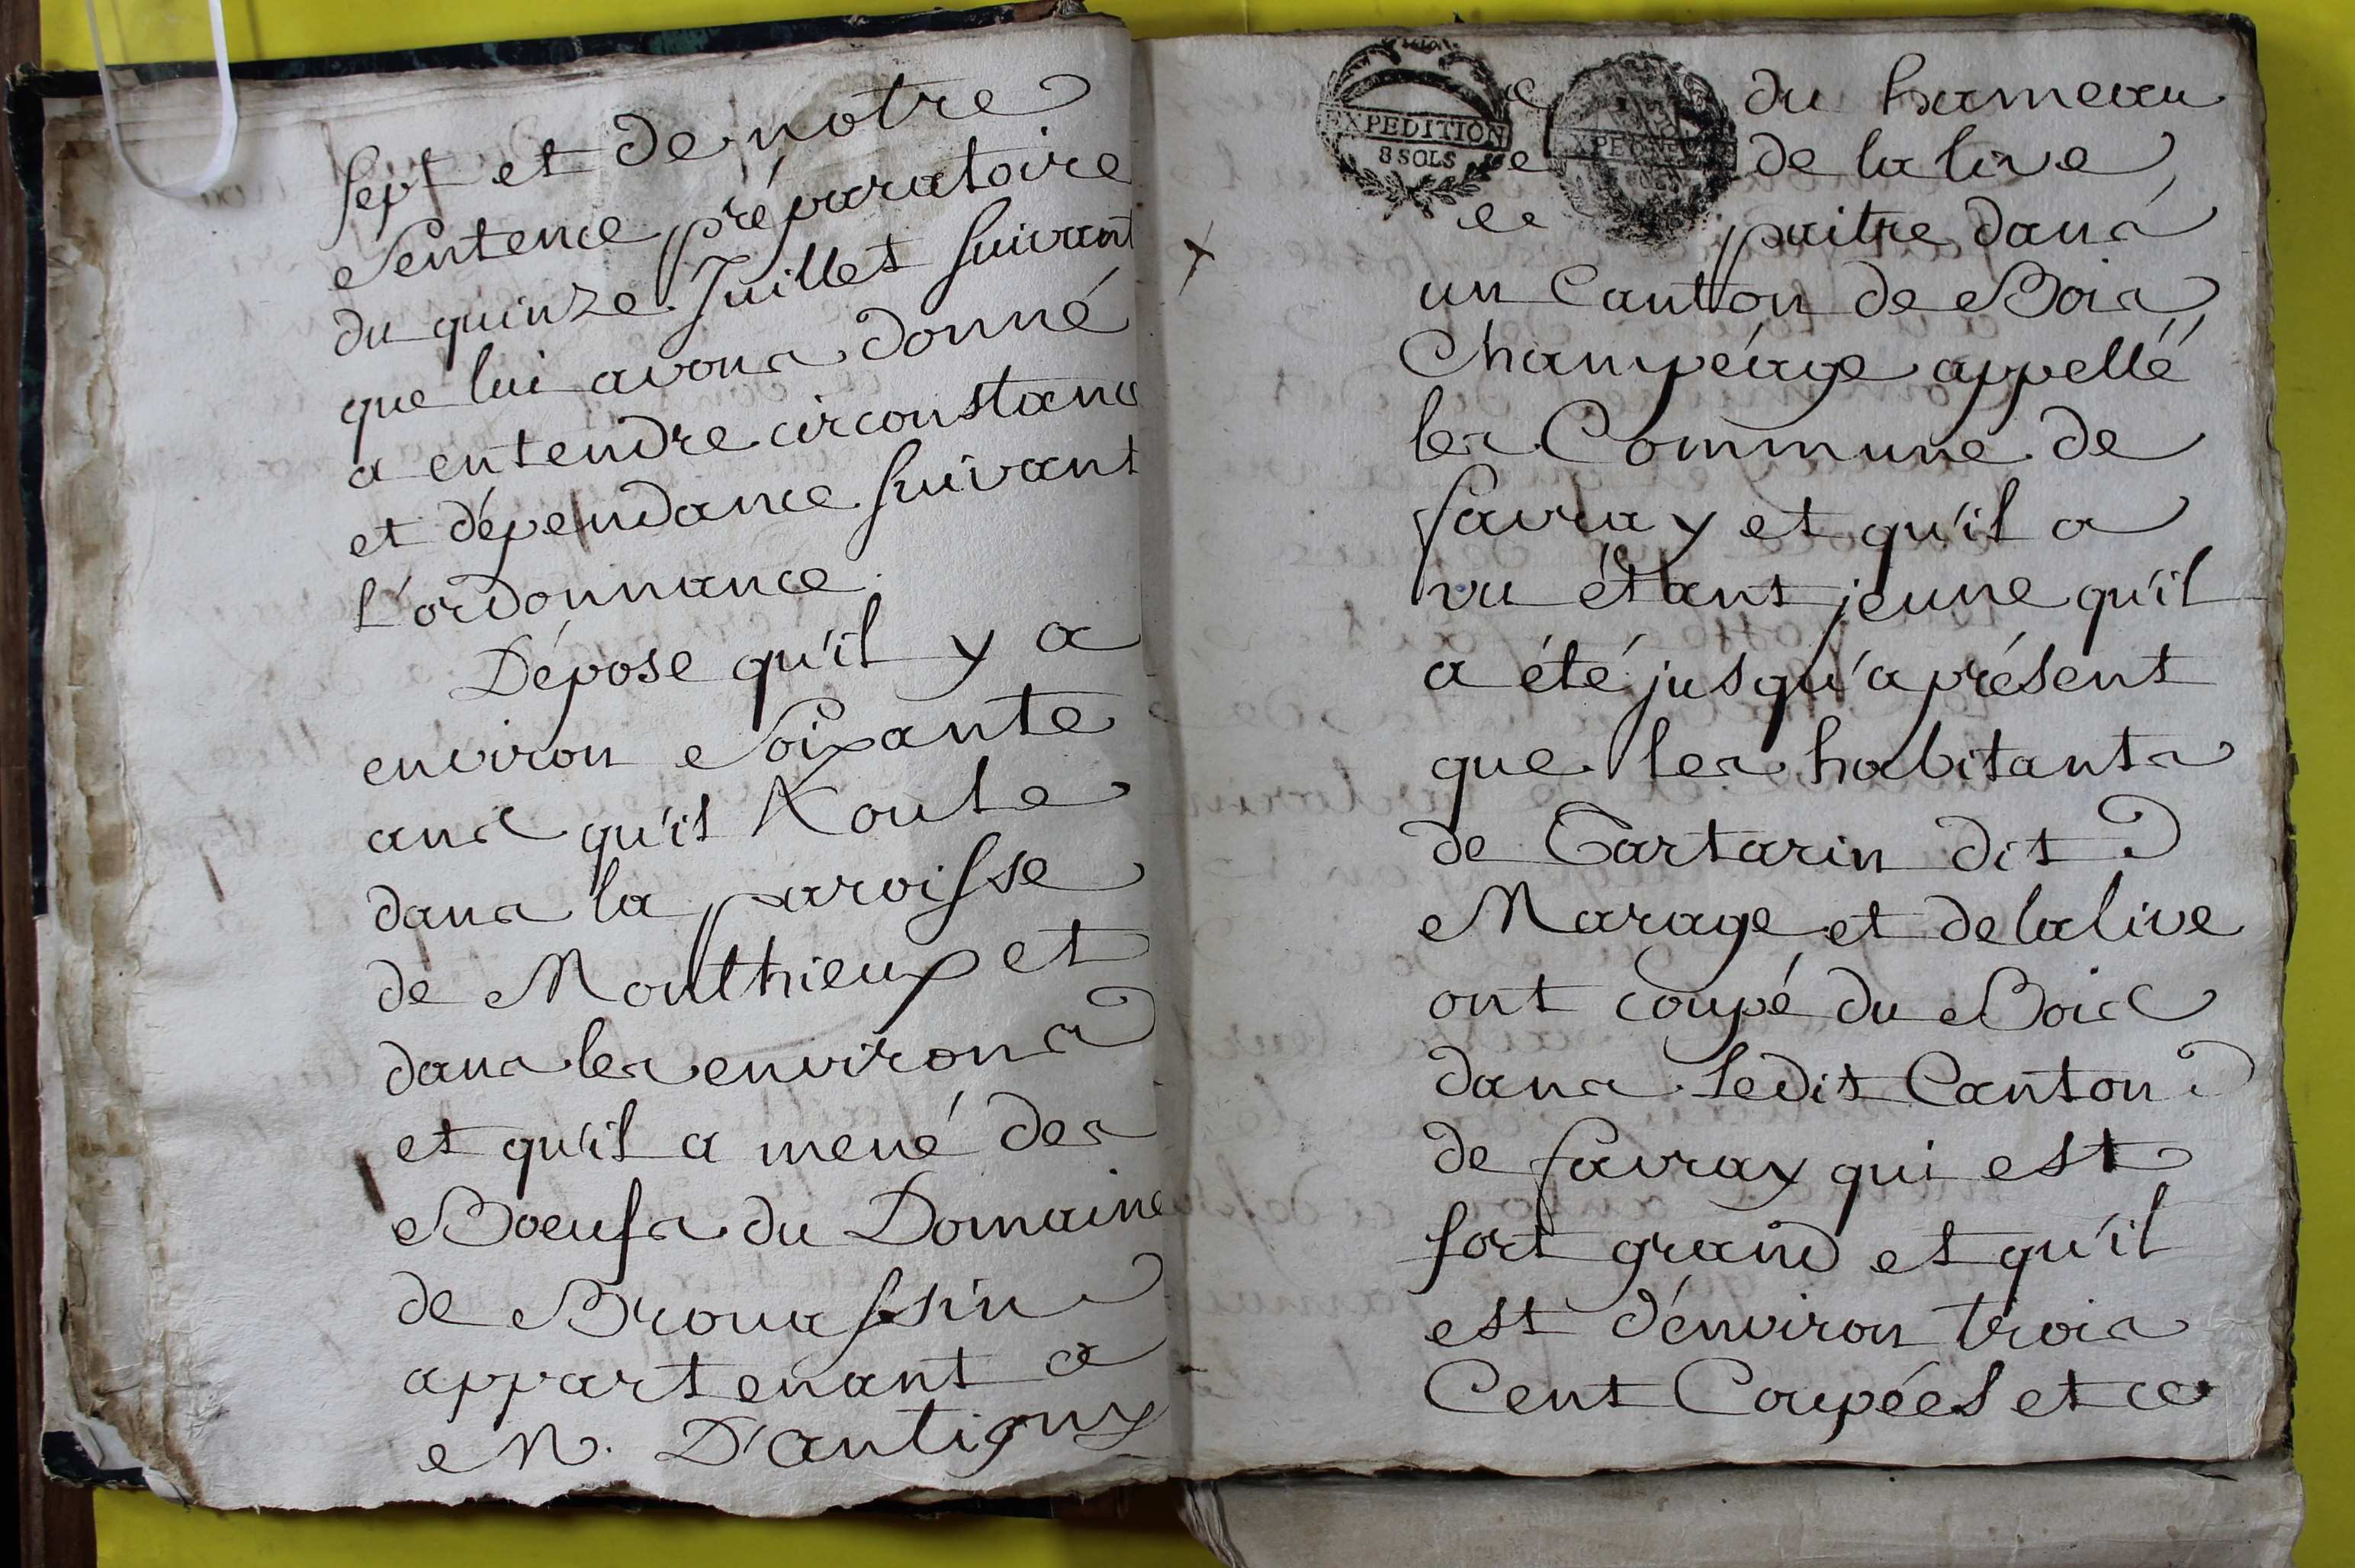 sept et de notre
Sentence préparatoire
du quinze Juillet suivant
que lui avons donné
a entendre circonstance
et dépendance suivant
l'ordonnance.
Dépose qu'il y a
environ Soixante
ans qu'il Roule
dans la paroisse
de Monthieux et
dans les environs
et qu'il a mené des
Boeufs du Domaine
de Brouassin
appartenant a
M. D'antigny
EXPEDITION
8 SOLS
du hameau
de la live
paitre dans
un Canton de Bois
Champéage appellé
les Commune de
favray et qu'il a
vu étant jeune qu'il
a été jusqu'a présent
que les habitants
de Tartarin dit
Marage et de la live
ont coupé du Bois
dans ledit Canton
de favray qui est
fort grand et qu'il
est d'environ trois
Cent Coupées et ce